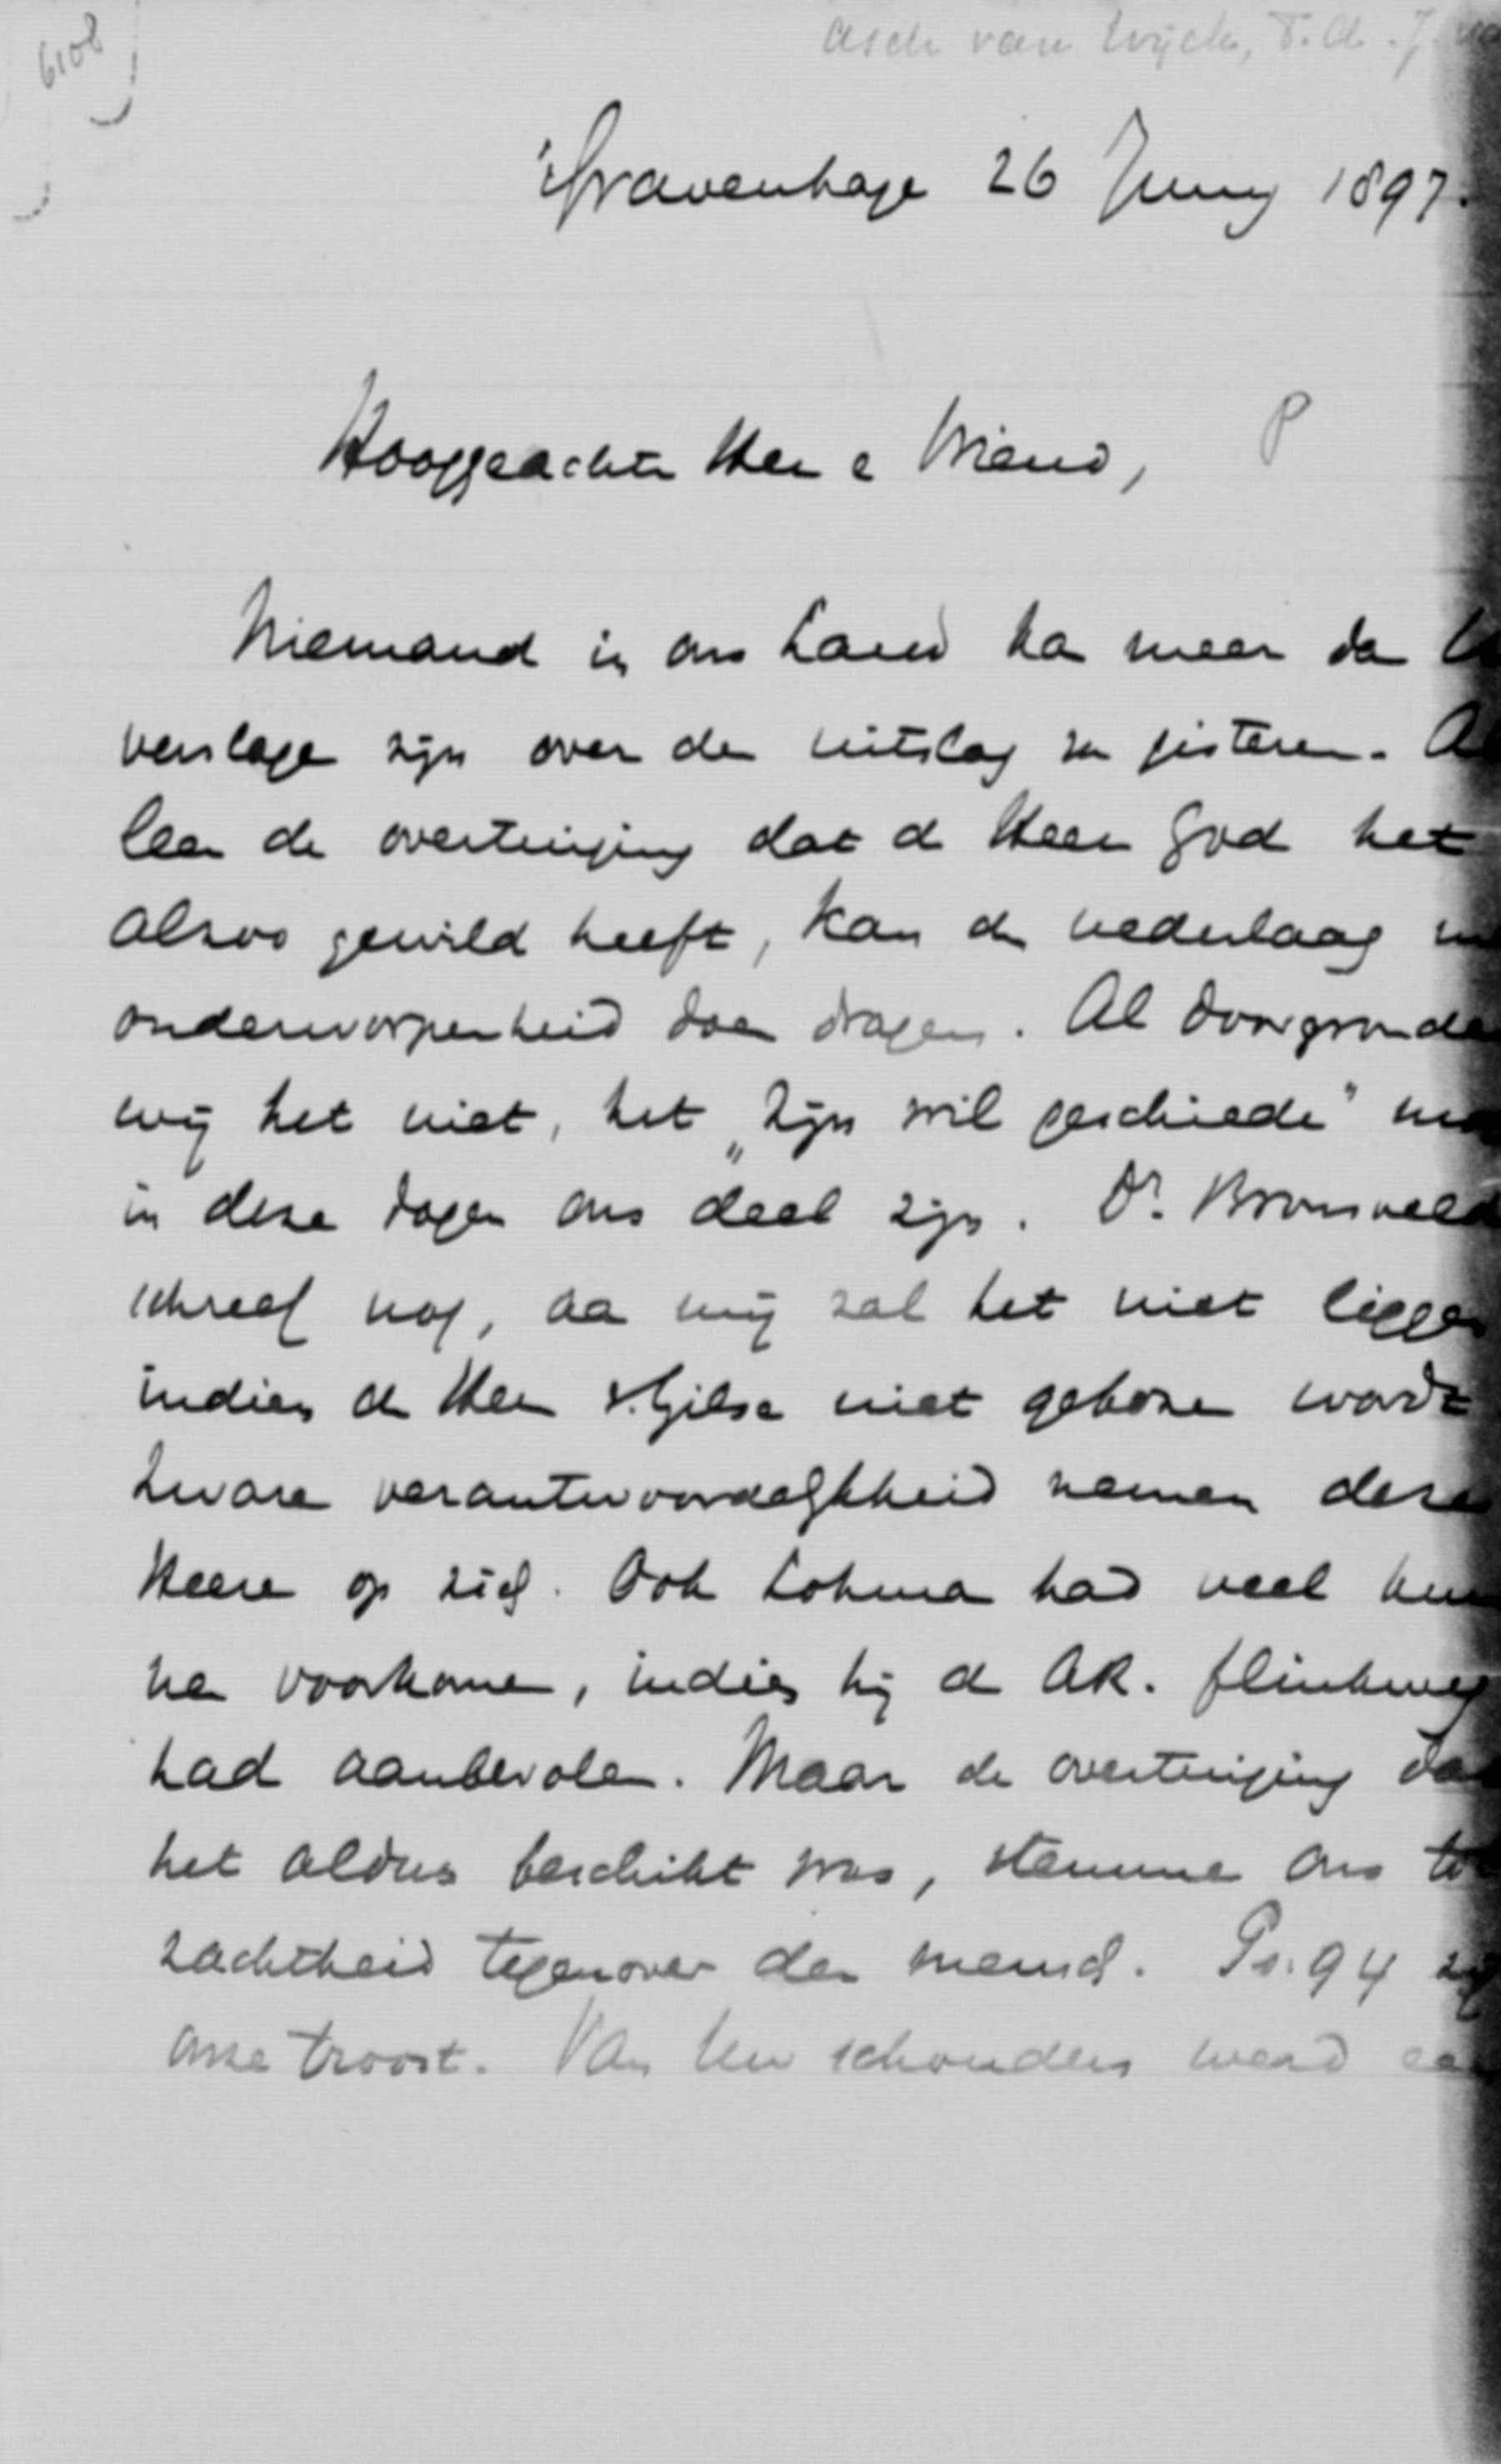 6108
Asch van Wijck, T. A. J.
'sGravenhage 26 Juny 1897.
Hooggeachte Heer e Vriend, P
Niemand in ons Land ka meer da U
verslage zijn over de uitslag va gisteren. Al
leen de overtuiging dat d Heer God het
alzoo gewild heeft, kan de nederlaag
onderworpenheid doen dragen. Al doorgronde
wij het niet, het „zijn wil geschiede"
in deze dagen ons deel zijn. Dr. Bronsveld
schreef nog, aa mij zal het niet ligge
indien de Heer v. Gilse niet gekozen wordt
Zware verantwoordelijkheid nemen deze
Heere op zich. Ook Lohma had veel kun
ne voorkome, indien hij d AR. flinkweg
had aanbevole. Maar de overtuiging dat
het aldus beschikt was, stemme ons to
zachtheid tegenover den mensch. Ps. 94 zij
onze troost. Van Uw schouders werd ee